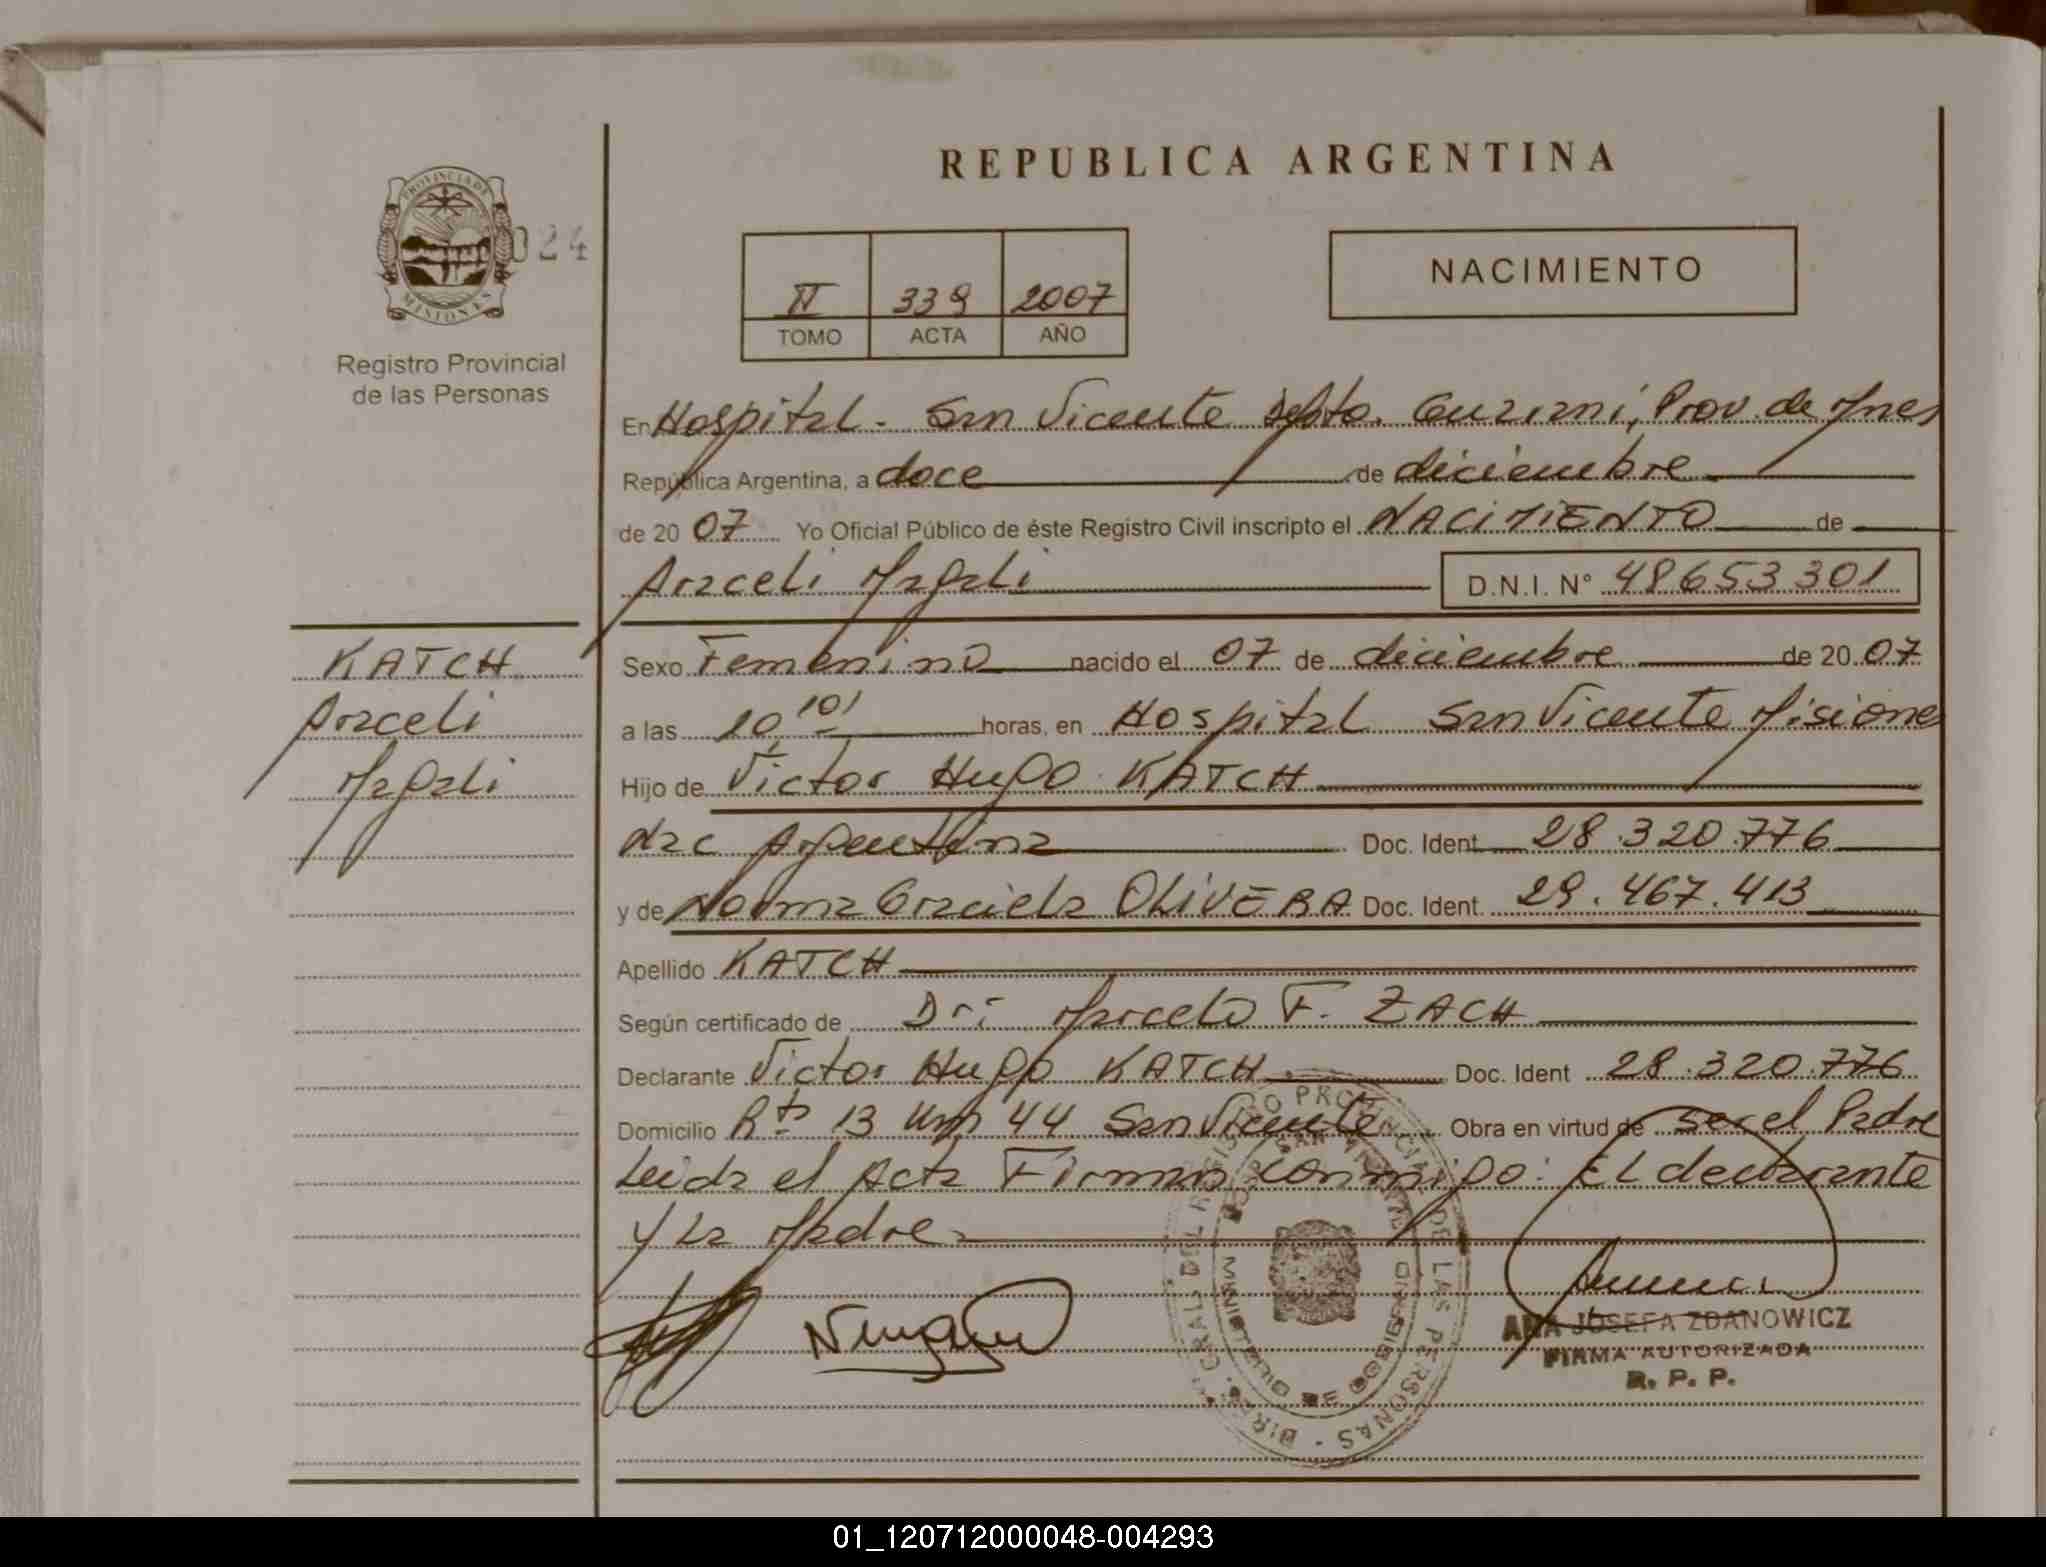 REPUBLICA ARGENTINA
PROVINCIA DE
MISIONES
024
Registro Provincial
de las Personas
II 339 2007
TOMO ACTA AÑO
NACIMIENTO
En Hospital - San Vicente Dpto. Guarani, Prov. de Mnes
República Argentina, a doce de diciembre
de 2007 Yo Oficial Público de éste Registro Civil inscripto el NACIMIENTO de
Araceli Magali D.N.I. N° 48653301
KATCH
Araceli
Magali
Sexo Femenino nacido el 07 de diciembre de 2007
a las 10,10 horas, en Hospital San Vicente Misiones
Hijo de Victor Hugo KATCH
Nac Argentina Doc. Ident 28.320.776
y de Norma Graciela OLIVERA Doc. Ident. 29.467.413
Apellido KATCH
Según certificado de Dr: Marcelo F. ZACH
Declarante Victor Hugo KATCH Doc. Ident 28.320.776
Domicilio Rta 13 Km 44 San Vicente Obra en virtud de ser el Padre
Leida el Acta Firman conmigo: El declarante
y La Madre
DIR. GRAL. DEL REGISTRO PROVINCIAL DE LAS PERSONAS
SAN VICENTE
MINISTERIO DE GOBIERNO
ANA JOSEFA ZDANOWICZ
FIRMA AUTORIZADA
R. P. P.
01_120712000048-004293